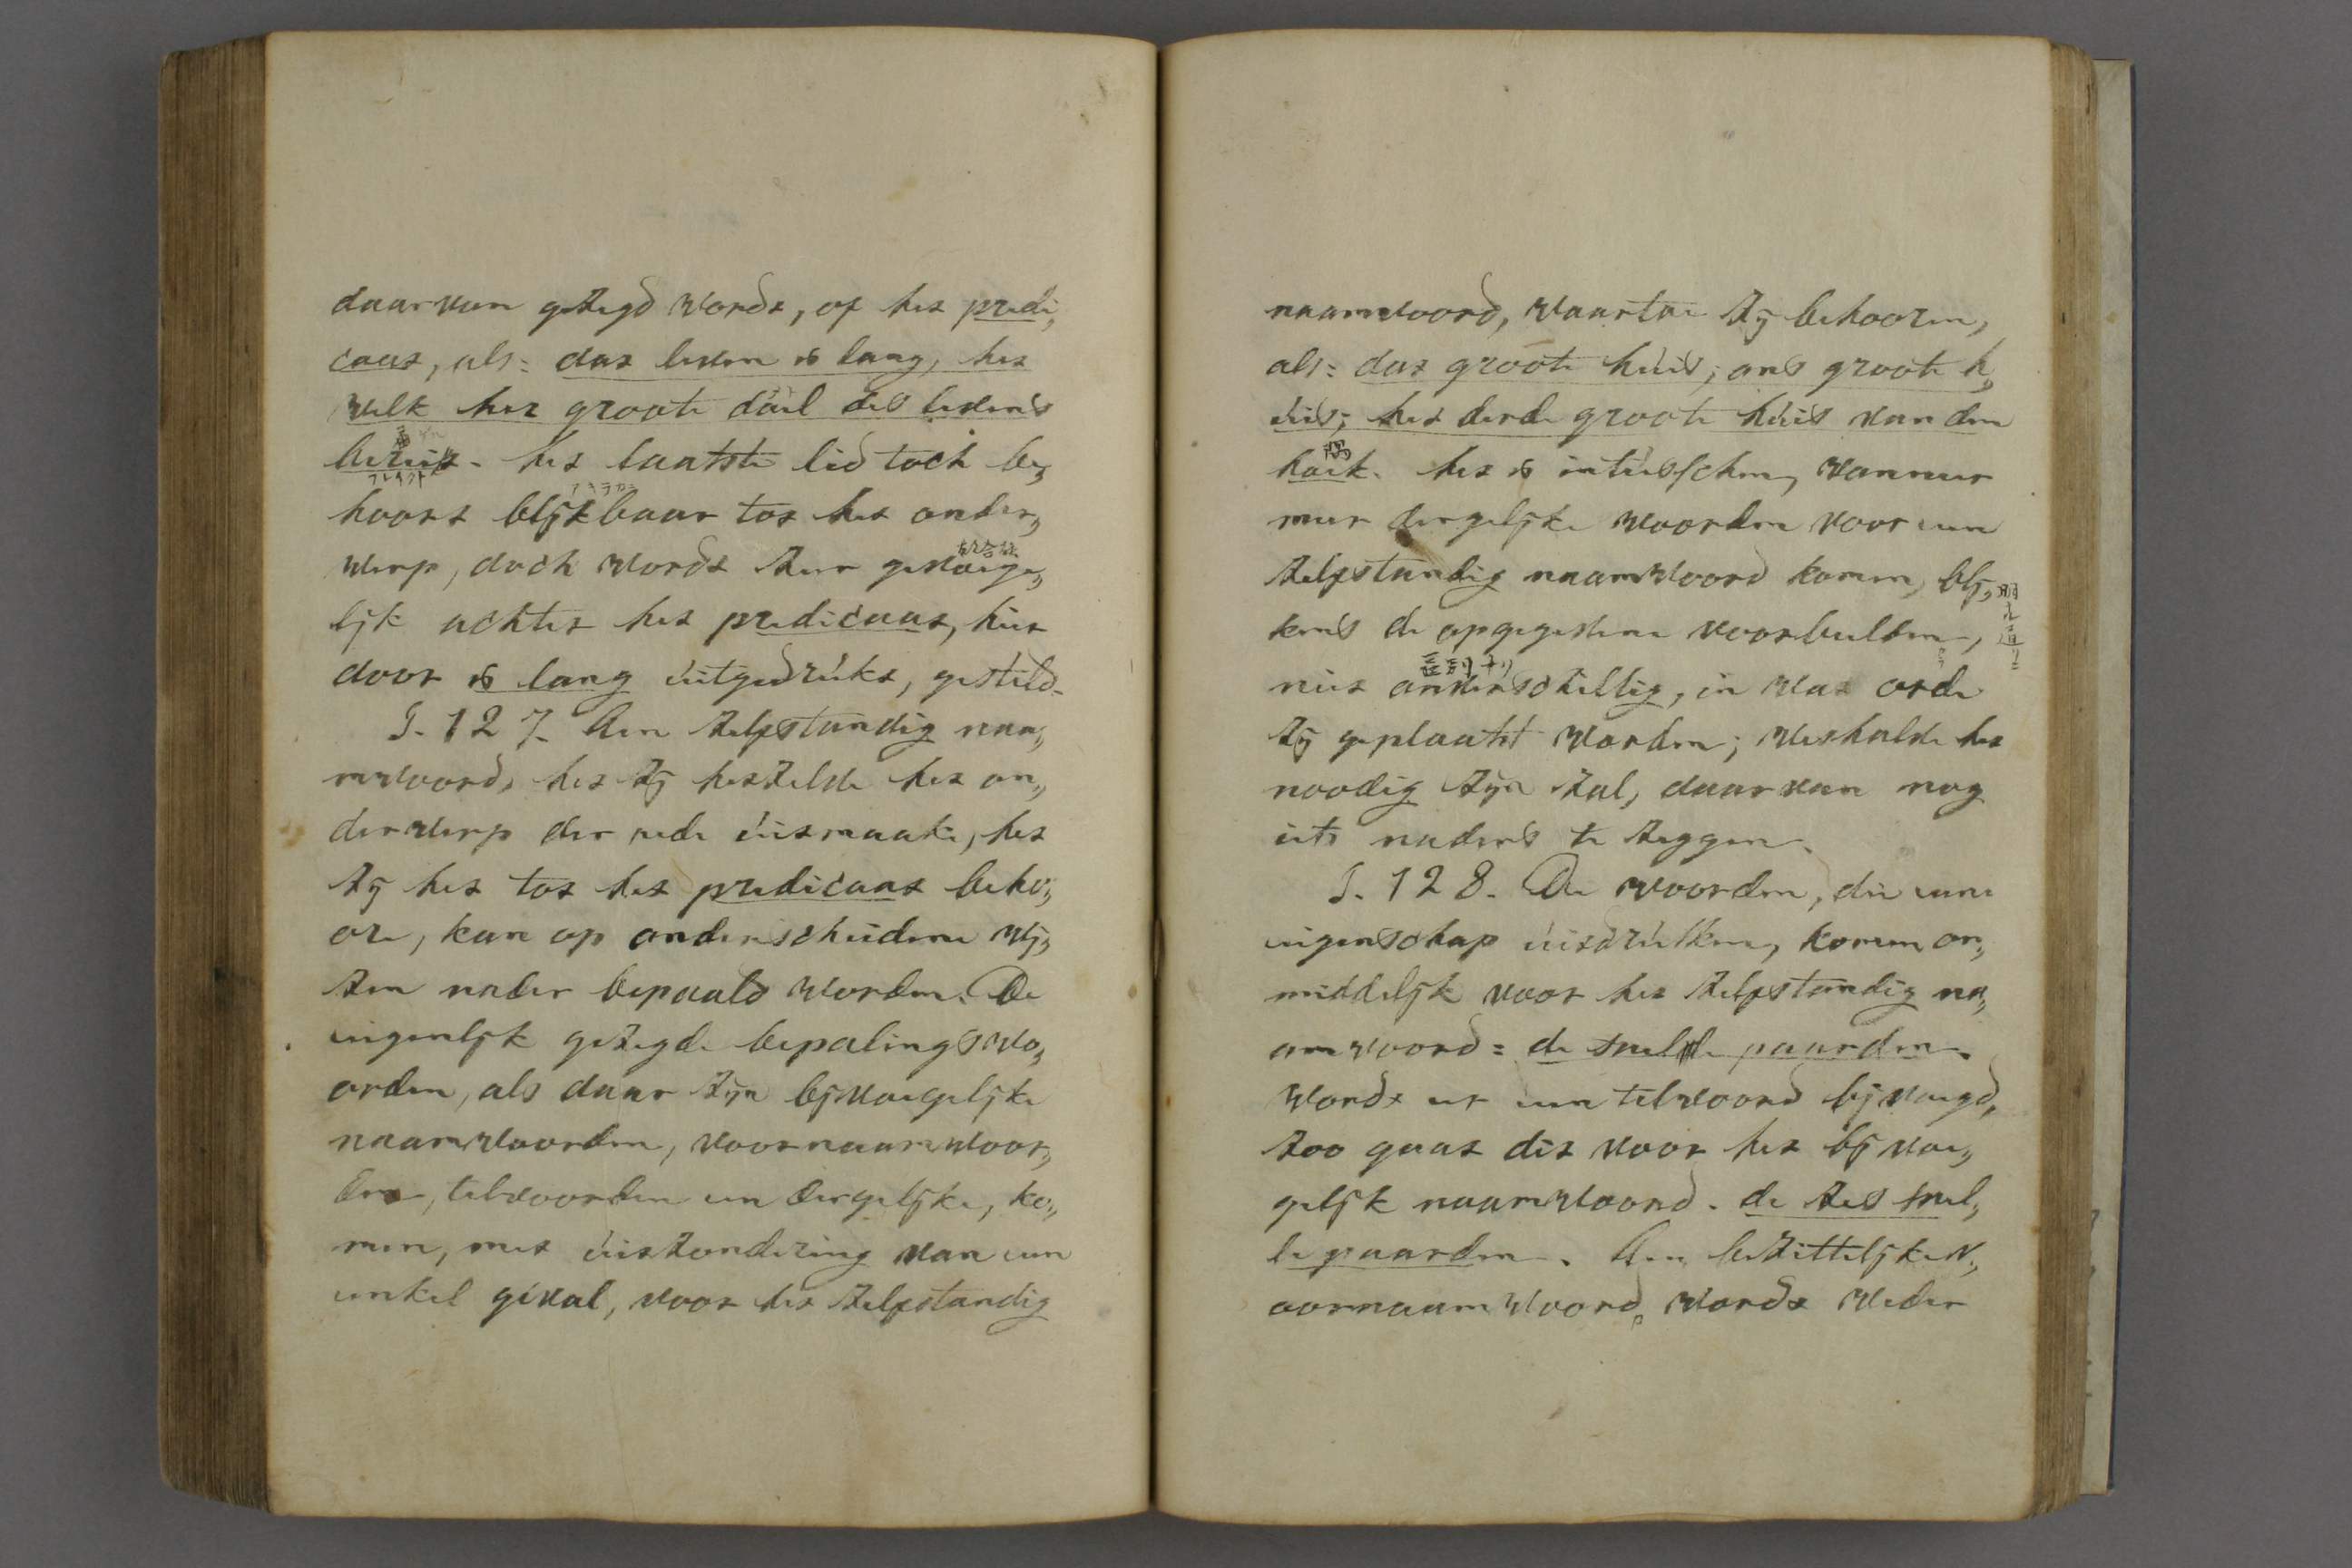 daarvan gezegd wordt, of het predi„
caat, als: dat leven is lang, het
welk het groote doel des levens
bereikt. het laatste lid toch be„
hoort blijkbaar tot het onder„
werp, doch wordt zeer gevoege„
lijk achter het predicaat, hier
door is lang uitgedrukt, gesteld.
§. 127. Een zelfstandig naa„
mwoord, het zij hetzelve het on„
derwerp der rede uitmaake, het
zij het tot het predicaat beho„
ore, kan op onderscheidene wij„
zen nader bepaald worden. De
eigenlijk gezegde bepalingswo„
orden, als daar zijn bijvoegelijke
naamwoorden, voornaamwoor„
den, telwoorden en dergelijke, ko„
men, met uitzondering van een
enkel geval, voor het zelfstandig
naamwoord, waartoe zij behooren,
als: dat groote huis; ons groote h„
uis; het derde groote huis van den
hoek. het is intusschen, wanneer
meer dergelijke woorden voor een
zelfstandig naamwoord komen, blij„
kens de opgegevene voorbeelden,
niet onverschillig, in wat orde
zij geplaatst worden; weshalve het
noodig zijn zal, daarvan nog
iets naders te zeggen.
§. 128. De woorden, die eene
eigenschap uitdrukken, komen on„
middelijk voor het zelfstandig na„
amwoord: de snelle paarden.
wordt er een telwoord bijvoegd,
zoo gaat dit voor het bijvoe„
gelijk naamwoord. de zes snel„
le paarden. Een bezittelijke v„
oornaamwoord, wordt weder
アキラカニ